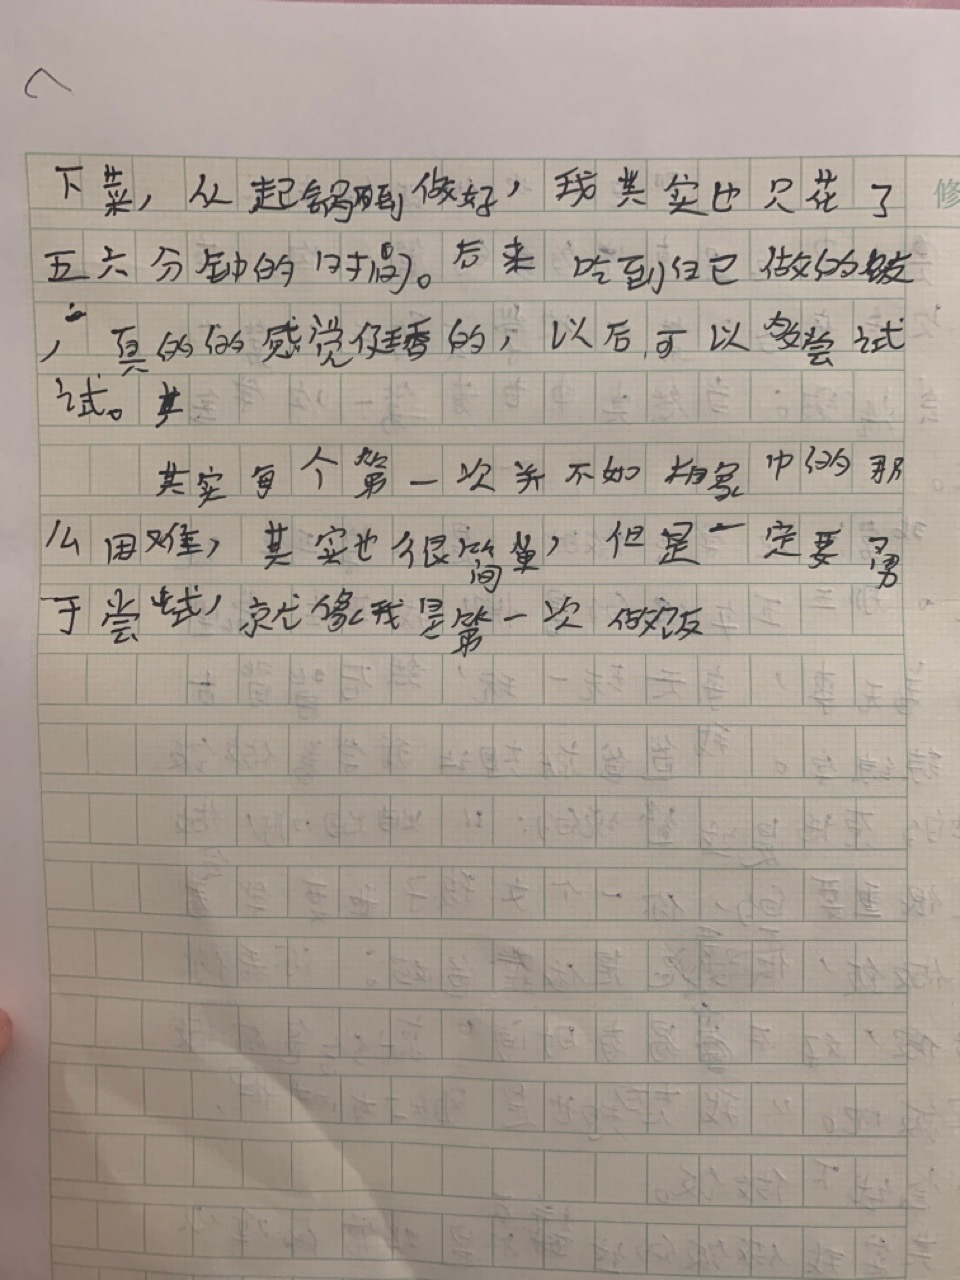 下菜，从起锅到做好，我其实也只花了
五六分钟的时间。后来吃到自己做的饭
，真的的感觉挺香的，以后可以多尝试
试。其
其实每个第一次并不如想象中的那
么困难，其实也很简单，但是一定要勇
于尝试，就像我是第一次做饭
修